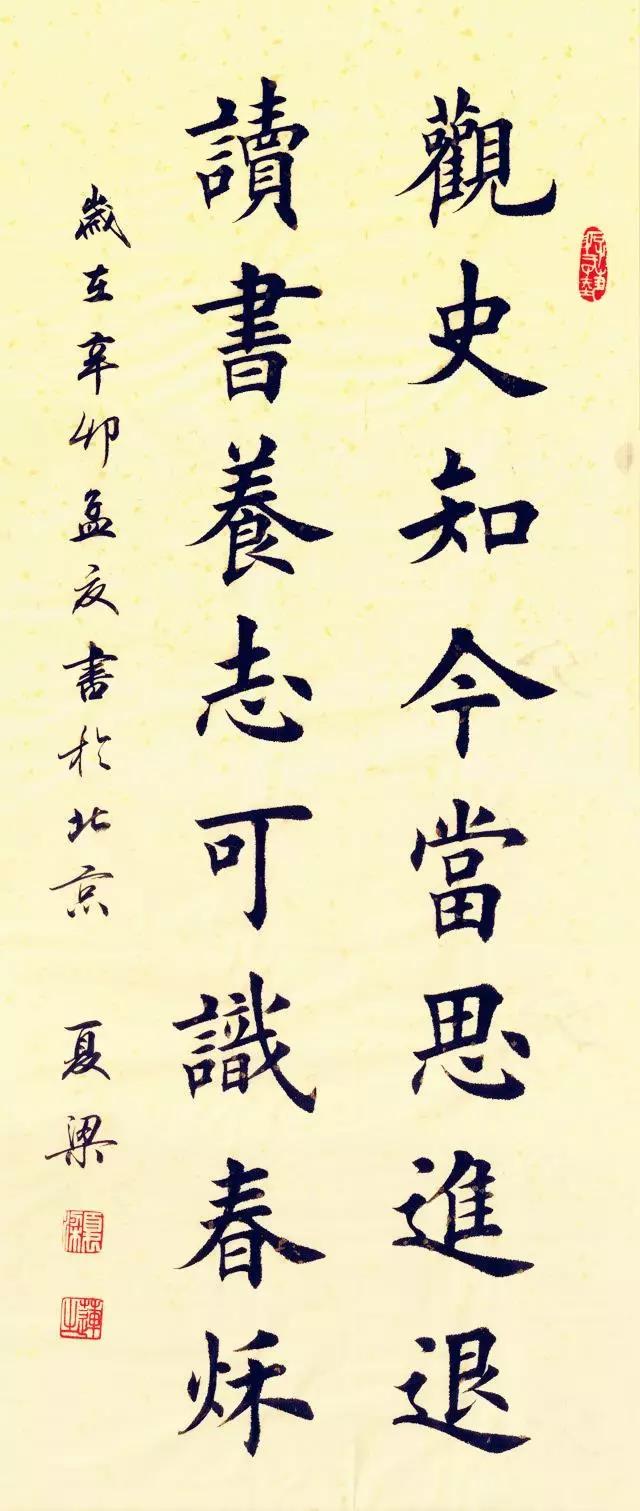 觀史知今當思進退
讀書養志可識春秌
歲在辛卯孟夏書於北京
夏梁
夏梁